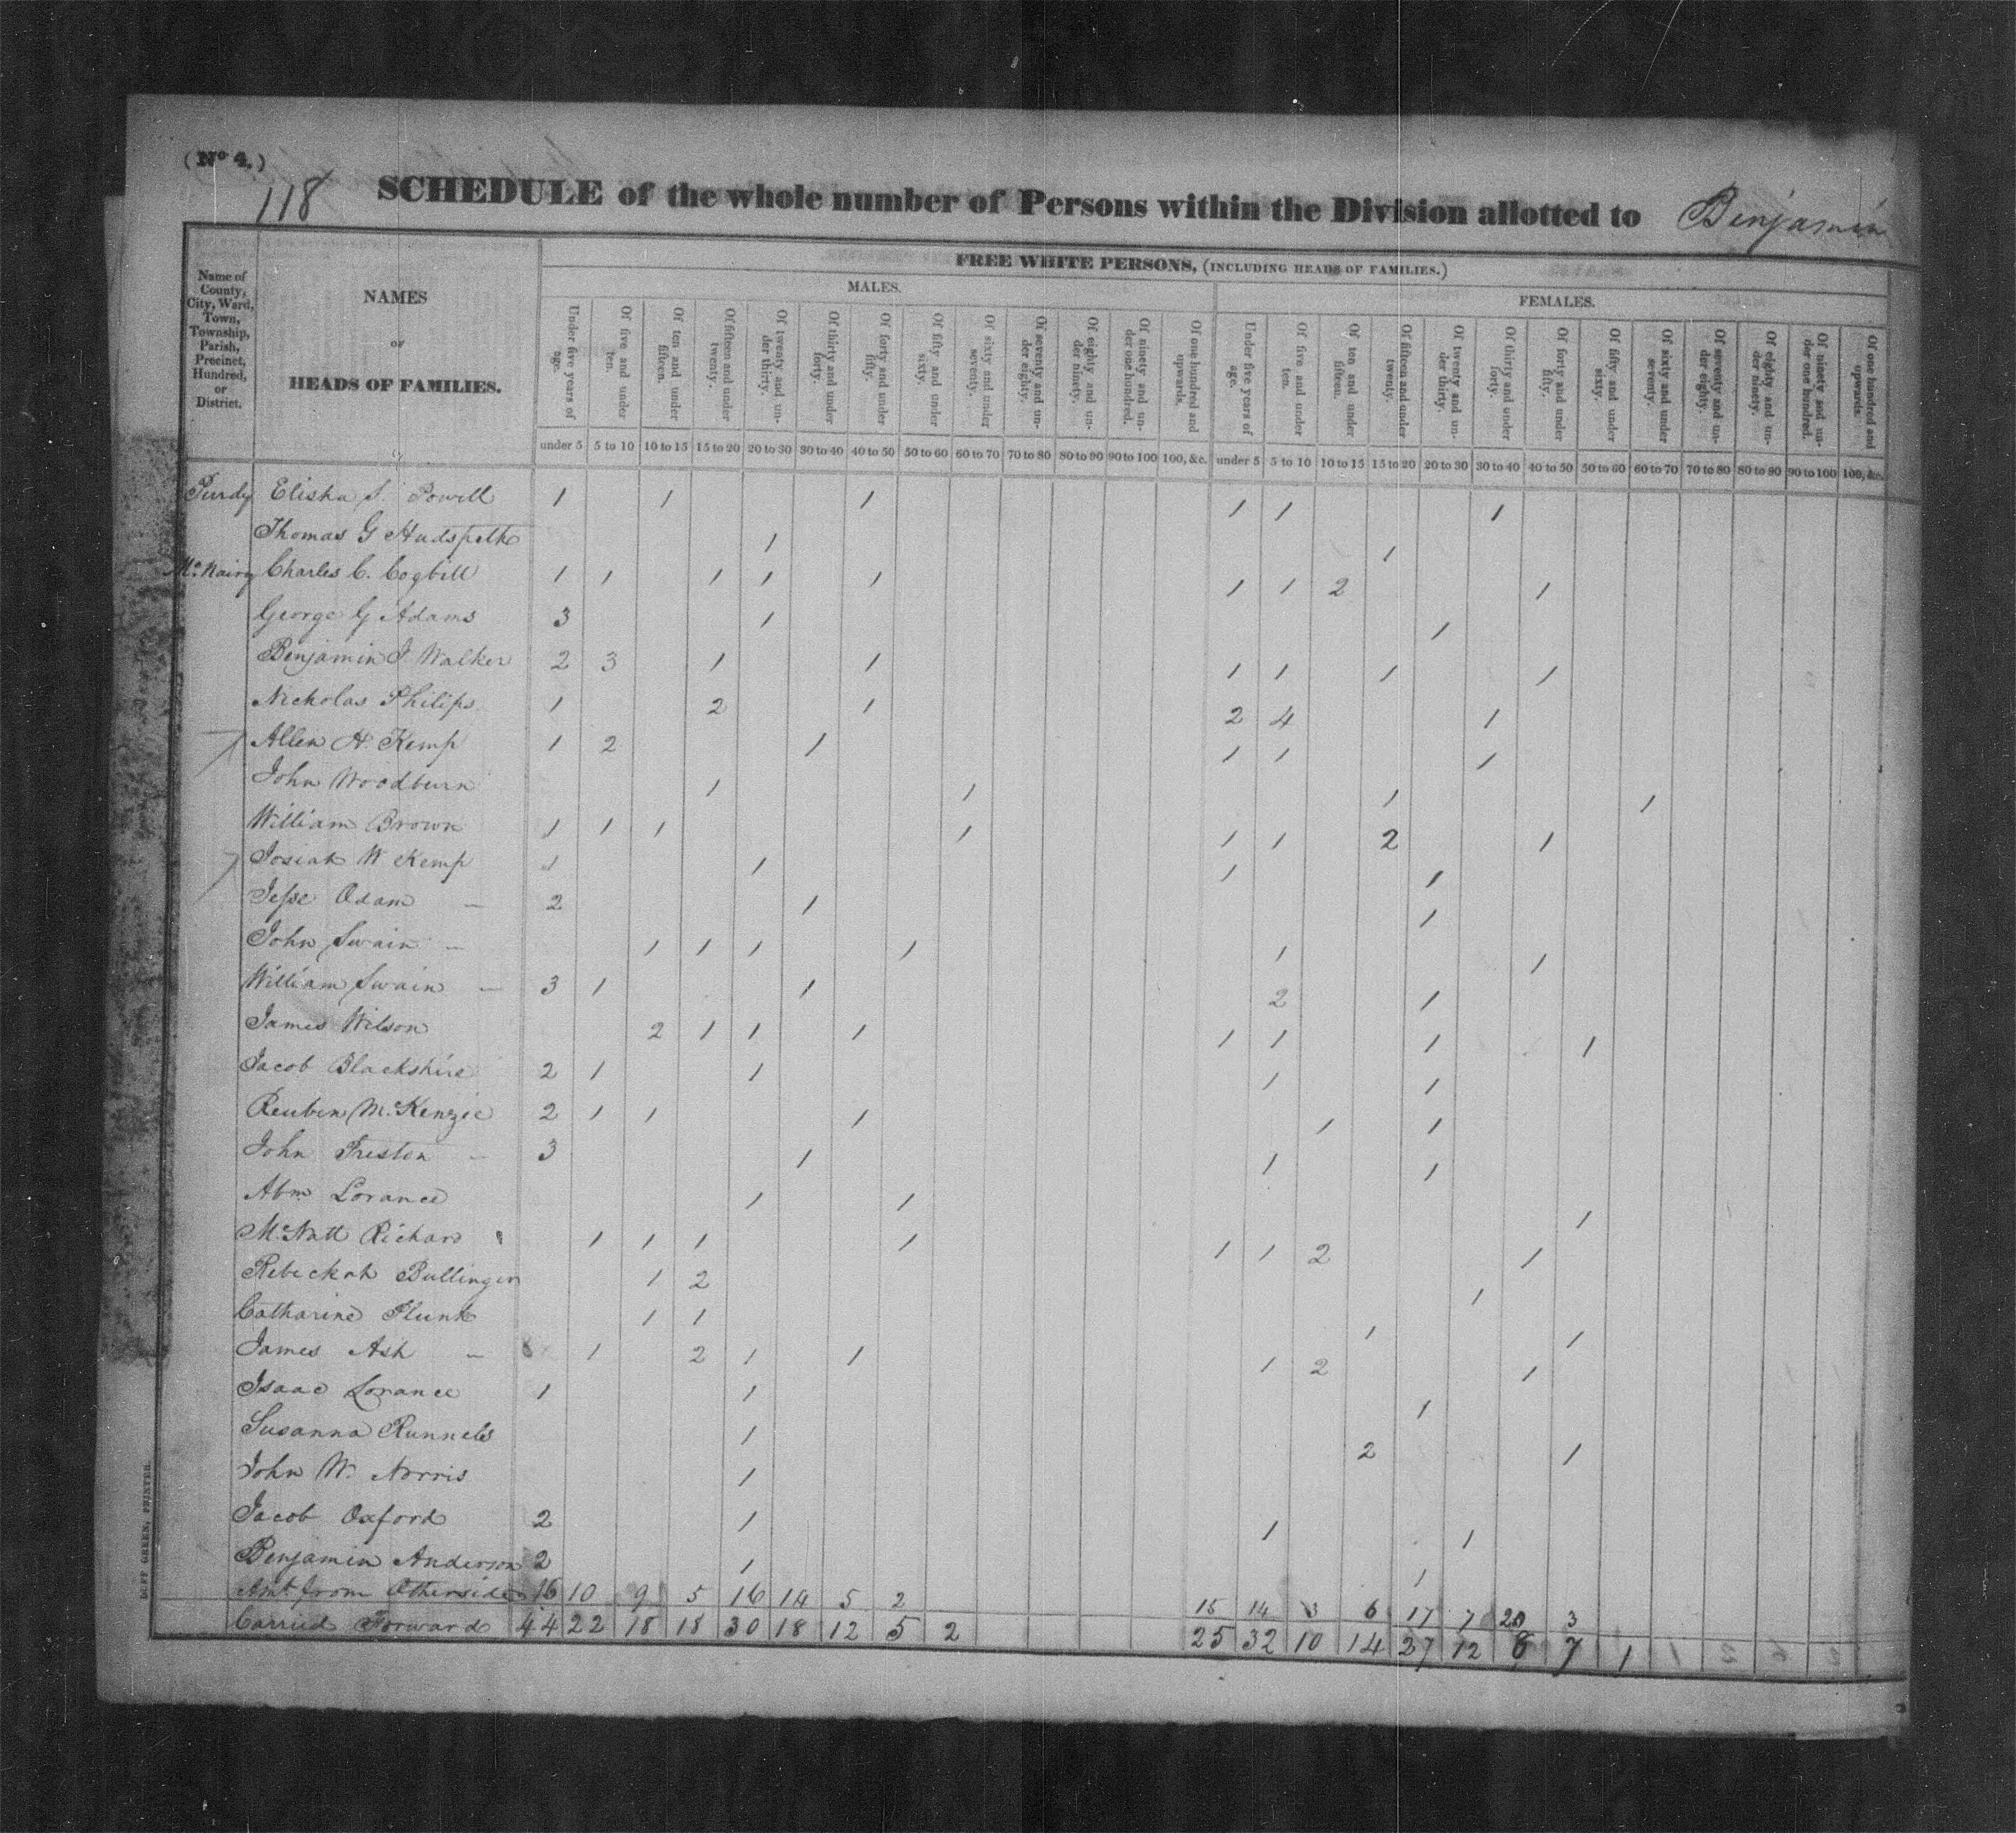 (No 4.)
118
SCHEDULE of the whole number of Persons within the Division allotted to Benjamin
Name of County, City, Ward, Town, Township, Parish, Precinct, Hundred, or District.
NAMES
OF
HEADS OF FAMILIES.
FREE WHITE PERSONS, (INCLUDING HEADS OF FAMILIES.)
MALES.
FEMALES.
Under five years of age. Of five and under ten. Of ten and under fifteen. Of fifteen and under twenty. Of twenty and under thirty. Of thirty and under forty. Of forty and under fifty. Of fifty and under sixty. Of sixty and under seventy. Of seventy and under eighty. Of eighty and under ninety. Of ninety and under one hundred. Of one hundred and upwards. Under five years of age. Of five and under ten. Of ten and under fifteen. Of fifteen and under twenty. Of twenty and under thirty. Of thirty and under forty. Of forty and under fifty. Of fifty and under sixty. Of sixty and under seventy. Of seventy and under eighty. Of eighty and under ninety. Of ninety and under one hundred. Of one hundred and upwards.
under 5 5 to 10 10 to 15 15 to 20 20 to 30 30 to 40 40 to 50 50 to 60 60 to 70 70 to 80 80 to 90 90 to 100 100, &c. under 5 5 to 10 10 to 15 15 to 20 20 to 30 30 to 40 40 to 50 50 to 60 60 to 70 70 to 80 80 to 90 90 to 100 100, &c.
Purdy Elisha S. Powell 1 1 1 1 1 1
Thomas G Hudspeth 1 1
McNairy Charles C. Cogbill 1 1 1 1 1 1 1 2 1
George G Adams 3 1 1
Benjamin J. Walker 2 3 1 1 1 1 1 1
Nicholas Philips 1 2 1 2 4 1
Allen H. Kemp 1 2 1 1 1 1
John Woodburn 1 1 1 1
William Brown 1 1 1 1 1 1 2 1
Josiah W Kemp 1 1 1 1
Jesse Odam – 2 1 1
John Swain – 1 1 1 1 1 1
William Swain – 3 1 1 2 1
James Wilson 2 1 1 1 1 1 1 1
Jacob Blackshire 2 1 1 1 1
Reuben McKenzie 2 1 1 1 1 1
John Preston – 3 1 1 1
Abm Lorance 1 1 1
McNatt Richard 1 1 1 1 1 1 2 1
Rebeckah Bullinger 1 2 1
Catharine Plunk 1 1 1 1
James Ash – 1 2 1 1 1 2 1
Isaac Lorance 1 1 1
Susanna Runnels 1 2 1
John W. Norris 1
Jacob Oxford 2 1 1 1
Benjamin Anderson 2 1 1
Amt from Otherside 16 10 9 5 16 14 5 2 15 14 3 6 17 7 3
Carried Forward 44 22 18 18 30 18 12 5 2 25 32 10 14 27 12 8 7 1
DUFF GREEN, PRINTER.